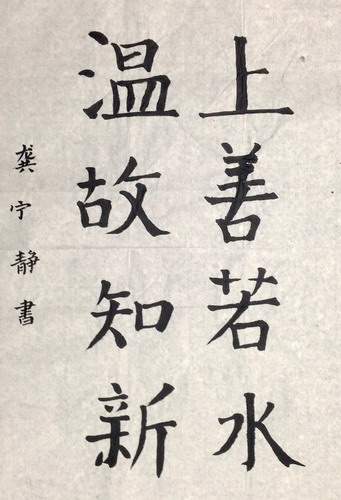 上善若水
温故知新
龚宁静书